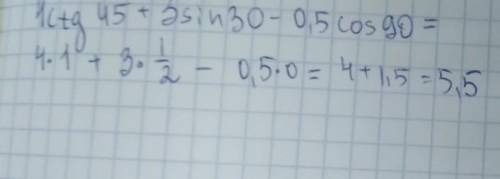 4ctg 45 + 3sin30 - 0,5 cos90 =
4·1 + 3·1/2 - 0,5·0 = 4+1,5 = 5,5